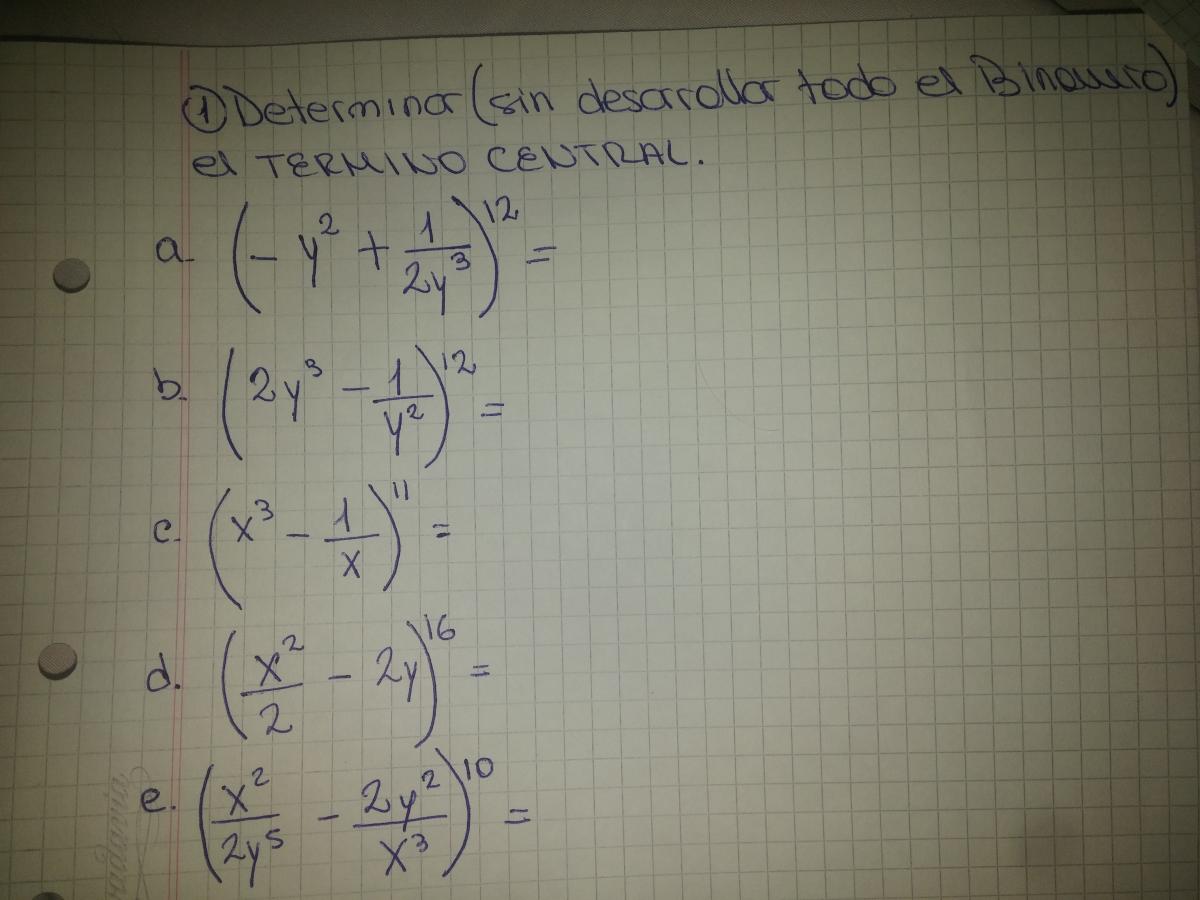 ① Determinar (sin desarrollar todo el Binomio)
el TERMINO CENTRAL.
a. (- y² + 1/2y³)¹² =
b. (2y³ - 1/y²)¹² =
c. (x³ - 1/x)¹¹ =
d. (x²/2 - 2y)¹⁶ =
e. (x²/2y⁵ - 2y²/x³)¹⁰ =